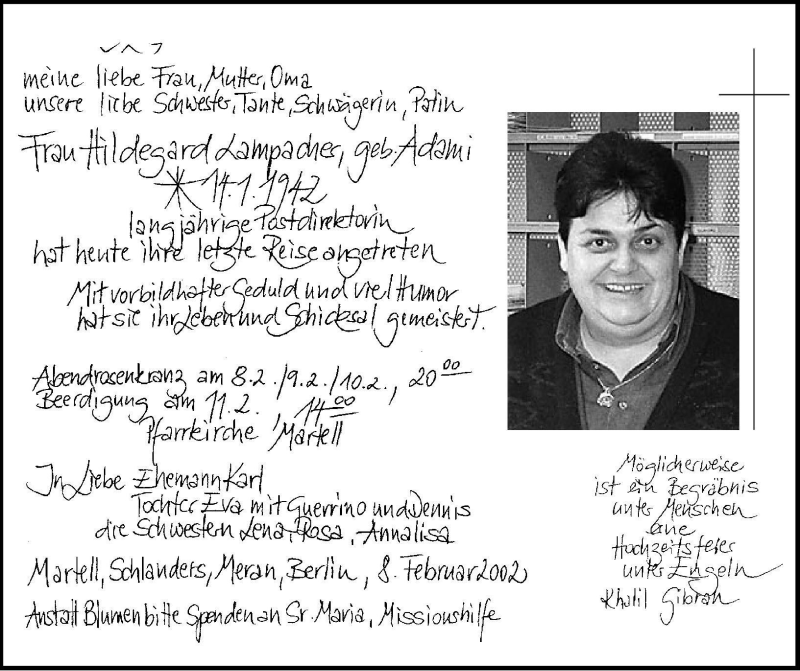 meine liebe Frau, Mutter, Oma
unsere liebe Schwester, Tante, Schwägerin, Patin
Frau Hildegard Lampacher, geb. Adami
* 14.1.1942
langjährige Postdirektorin
hat heute ihre letzte Reise angetreten
Mit vorbildhafter Geduld und viel Humor
hat sie ihr Leben und Schicksal gemeistert.
Abendrosenkranz am 8.2./9.2./10.2., 20 00
Beerdigung am 11.2., 14 00
Pfarrkirche Martell
In Liebe Ehemann Karl
Tochter Eva mit Guerrino und Dennis
die Schwestern Lena, Rosa, Annalisa
Martell, Schlanders, Meran, Berlin, 8. Februar 2002
Anstatt Blumen bitte Spenden an Sr. Maria, Missionshilfe
Möglicherweise
ist ein Begräbnis
unter Menschen
eine
Hochzeitsfeier
unter Engeln
Khalil Gibran